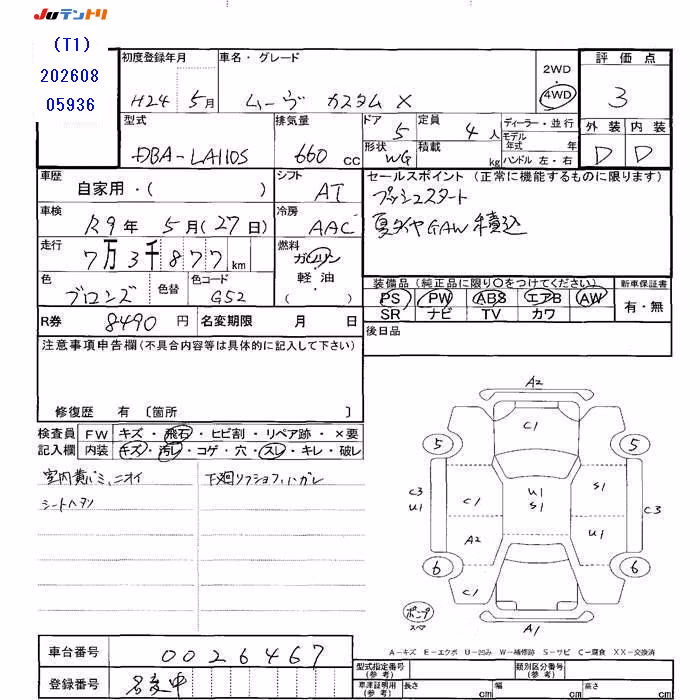 JUテントリ
(T1)
202608
05936
初度登録年月
H24 5月
車名・グレード
ムーヴ カスタム X
2WD
・
4WD
評価点
3
外装 内装
D D
型式
DBA-LA110S
排気量
660 cc
ドア 5
形状 WG
定員 4 人
積載 kg
ディーラー・並行
モデル
年式 年
ハンドル 左・右
車歴
自家用・( )
シフト AT
車検
R9年 5月(27日)
冷房 AAC
走行
7万3千877km
燃料
ガソリン
軽・油
・( )
色
ブロンズ
色替
色コード
G52
セールスポイント (正常に機能するものに限ります)
プッシュスタート
夏タイヤGAW積込
装備品(純正品に限り○をつけてください)
新車保証書
PS PW ABS エアB AW
SR ナビ TV カワ
有・無
R券 8490 円
名変期限 月 日
後日品
注意事項申告欄(不具合内容等は具体的に記入して下さい)
修復歴 有 〔箇所 〕
検査員
記入欄
FW キズ・飛石・ヒビ割・リペア跡・×要
内装 キズ・汚レ・コゲ・穴・スレ・キレ・破レ
室内黄バミ、ニオイ
シートヘタリ
下廻リ
ハガレ
A2
C1
5 5
C3
U1
C1
U1
S1
S1
C3
A2
U1
6 6
C1
A1
ポンプ
スペア
A-キズ E-エクボ U-凹み W-補修跡 S-サビ C-腐食 XX-交換済
車台番号 0026467
登録番号 名変中
型式指定番号
(参考)
類別区分番号
(参考)
車庫証明用
(参考)
長さ cm
幅 cm
高さ cm